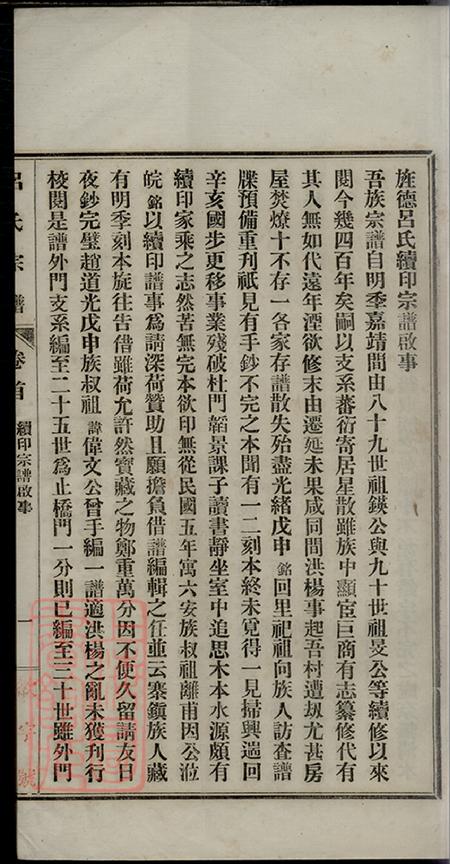 旌德呂氏續印宗譜啟事
吾族宗譜自明季嘉靖間由八十九世祖鍈公與九十世祖旻公等續修以來
閱今幾四百年矣嗣以支系蕃衍寄居星散雖族中顯宦巨商有志纂修代有
其人無如代遠年湮欲修末由遷延未果咸同間洪楊事起吾村遭刼尤甚房
屋焚燎十不存一各家存譜散失殆盡光緒戊申銘回里祀祖向族人訪查譜
牒預備重刊祇見有手鈔不完之本聞有一二刻本終未覓得一見掃興遄回
辛亥國步更移事業殘破杜門韜景課子讀書靜坐室中追思木本水源頗有
續印家乘之志然苦無完本欲印無從民國五年寓六安族叔祖離甫因公涖
皖銘以續印譜事為請深荷贊助且願擔負借譜編輯之任並云寨鎮族人藏
有明季刻本旋往吿借雖荷允許然寶藏之物鄭重萬分因不便久留請友日
夜鈔完璧趙道光戊申族叔祖諱偉文公曾手編一譜適洪楊之亂未獲刊行
校閱是譜外門支系編至二十五世為止橋門一分則已編至三十世雖外門
呂氏宗譜 卷首 續印宗譜啟事 一